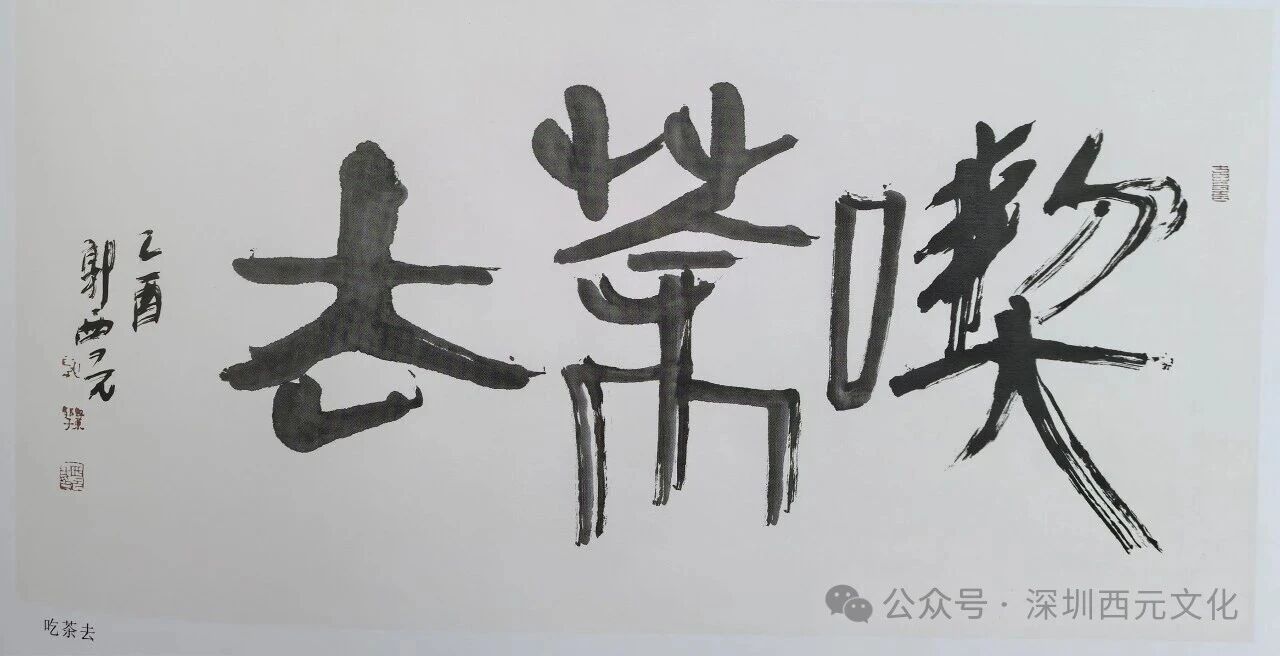 喫茶去
乙酉
郭西元
吃茶去
公众号 · 深圳西元文化